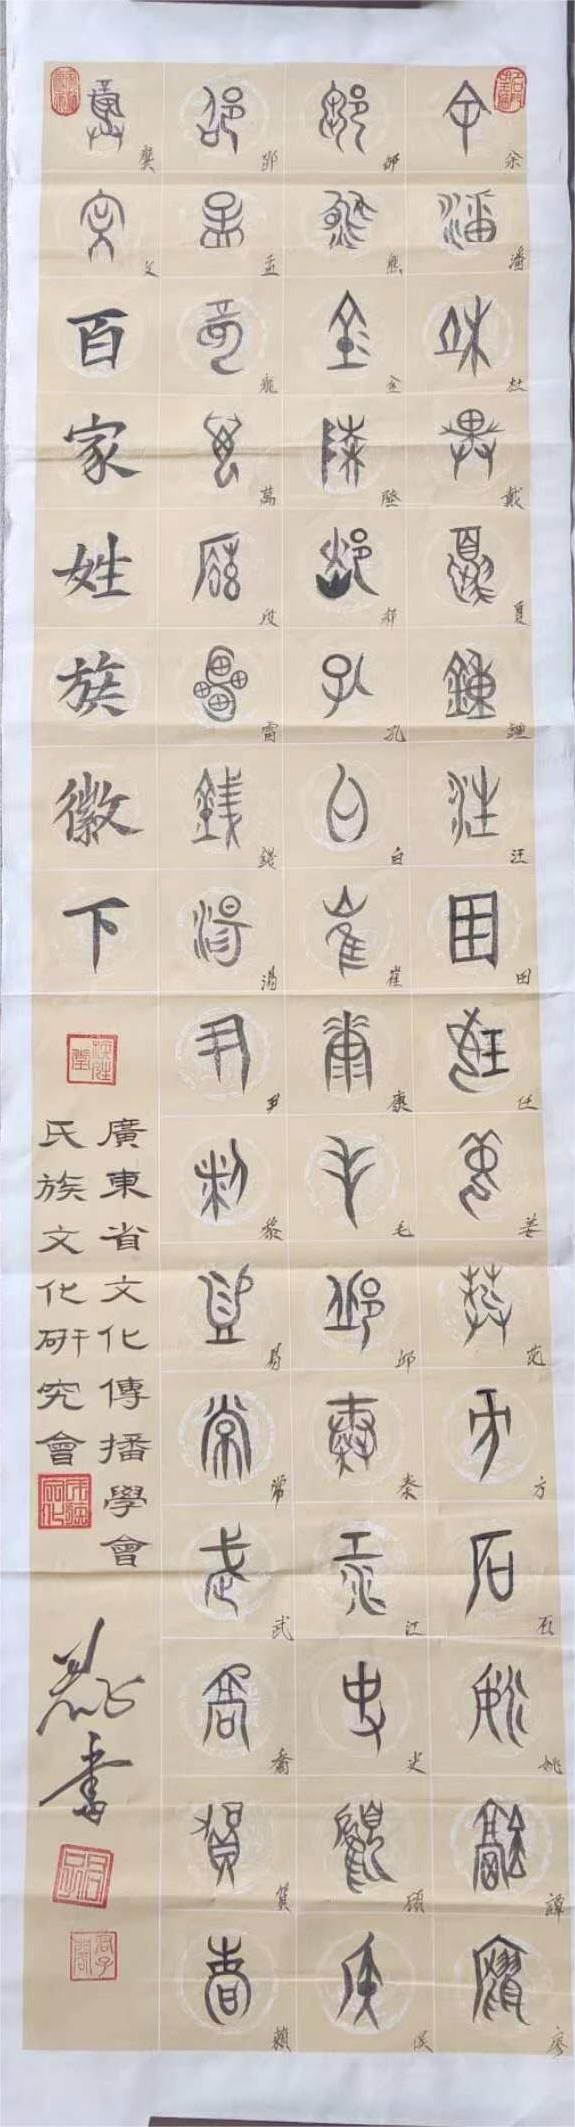 余
潘
杜
戴
夏
鍾
汪
田
任
姜
范
方
石
姚
譚
廖
鄒
熊
金
陸
郝
孔
白
崔
康
毛
邱
秦
江
史
顧
侯
邵
孟
龍
萬
段
雷
錢
湯
尹
黎
易
常
武
喬
賀
賴
龔
文
百家姓族徽下
廣東省文化傳播學會
氏族文化研究會
書